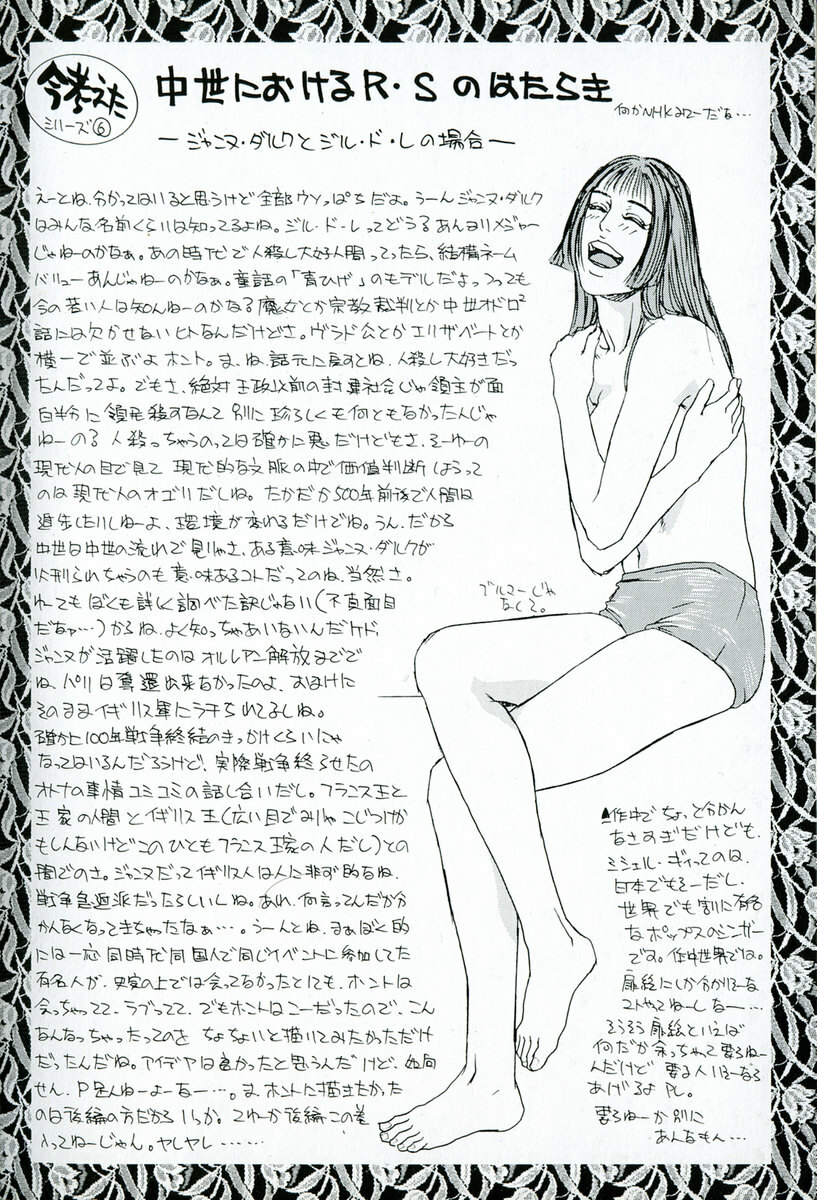 今考えた
シリーズ⑥
中世におけるR・Sのはたらき
何かNHKみてーだな…
ージャンヌ・ダルクとジル・ド・レの場合ー
えーとね、分かってはいると思うけど全部ウソっぱちだよ。うーんジャンヌ・ダルク
はみんな名前くらいは知ってるよね。ジル・ド・レってどうなあんまりメジャー
じゃねーのかなぁ。あの時代で人殺し大好人間ってったら、結構ネーム
バリューあんじゃねーのかなぁ。童話の「青ひげ」のモデルだよっつっても
今の若い人は知んねーのかなぁ魔女とか宗教裁判とか中世オドロ²
話には欠かせないヒトなんだけどさ。ヴラド公とかエリザベートとか
横一で並ぶよホント。ま、ね、話元に戻すとね、人殺し大好きだっ
たんだってよ。でもさ、絶対王政以前の封建社会じゃ領主が面
白半分に領民殺すなんて別に珍らしくも何ともなかったんじゃ
ねーの?人殺っちゃうのっては確かに悪だけどもさ、そーゆーの
現代人の目で見て現代的な文脈の中で価値判断しようって
のは現代人のオゴリだしね。たかだか500年前後で人間は
進歩したりしねーよ、環境が変わるだけでね。うん、だから
中世は中世の流れで見りゃさ、ある意味ジャンヌ・ダルクが
火刑られちゃうのも意味あるコトだってのね、当然さ。
わーてもぼくも詳しく調べた訳じゃない(不真面目
だなァ…)からね、よく知っちゃあいないんだケド
ジャンヌが活躍したのはオルレアン解放までで
ね、パリは奪還出来なかったのよ、おまけに
そのままイギリス軍にラチられてるしね。
確かに100年戦争終結のきっかけくらいにゃ
なってはいるんだろうけど、実際戦争終らせたの
オトナの事情コミコミの話し合いだし。フランス王と
王家の人間とイギリス王(広い目でみりゃこじつけか
もしんないけどこのひともフランス王家の人だし)との
間でのさ。ジャンヌだってイギリス人は人に非ず的なね、
戦争急進派だったらしいしね。あれ、何言ってんだか分
かんなくなってきちゃったなぁ…。うーんとね、まぁぼく的
には一応同時代同国人で同じイベントに参加してた
有名人が、史実の上では会ってなかったとしても、ホントは
会っちゃってて、ラブってて、でもホントはこーだったので、こん
なんなっちゃったってのを ちょちょいと描いてみたかっただけ
だったんだね。アイデアは良かったと思うんだけど、如何
せん、P足んねーよーなー…。ま、ホントに描きたかった
のは後編の方だからいっか。てゆーか後編この巻
入ってねーじゃん。ヤレヤレ……
ブルマーじゃ
なくて。
▲作中でちょっと分かん
なさすぎだけども、
ミシェル・ギィってのは、
日本でもそーだし、
世界でも割に有名
なポップスのシンガー
です。作中世界では。
扉絵にしか分かりそーな
コトやってねーしなー…
そうそう扉絵といえば
何だか余っちゃって要らねー
んだけど 要る人いるーなら
あげるよPL。
要らねーか別に
あんなもん…